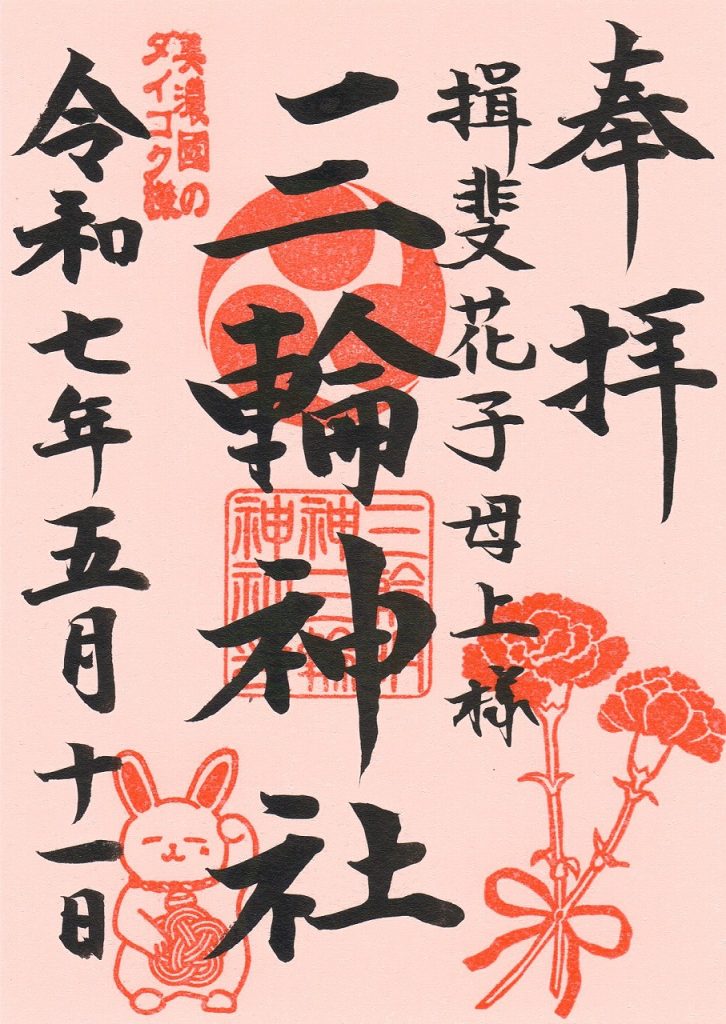 奉拝
揖斐花子母上様
三輪神社
三輪明
神三輪
神社
美濃國の
ダイコク様
令和七年五月十一日